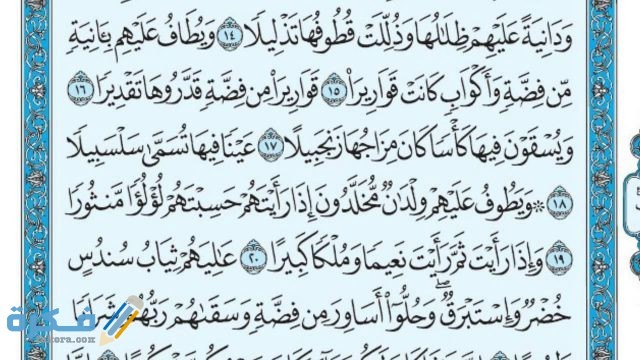 وَدَانِيَةً عَلَيْهِمْ ظِلَالُهَا وَذُلِّلَتْ قُطُوفُهَا تَذْلِيلًا ١٤ وَيُطَافُ عَلَيْهِم بِـَٔانِيَةٍ
مِّن فِضَّةٍ وَأَكْوَابٍ كَانَتْ قَوَارِيرَا۠ ١٥ قَوَارِيرَا۟ مِن فِضَّةٍ قَدَّرُوهَا تَقْدِيرًا ١٦
وَيُسْقَوْنَ فِيهَا كَأْسًا كَانَ مِزَاجُهَا زَنجَبِيلًا ١٧ عَيْنًا فِيهَا تُسَمَّىٰ سَلْسَبِيلًا
١٨ ۞ وَيَطُوفُ عَلَيْهِمْ وِلْدَٰنٌ مُّخَلَّدُونَ إِذَا رَأَيْتَهُمْ حَسِبْتَهُمْ لُؤْلُؤًا مَّنثُورًا
١٩ وَإِذَا رَأَيْتَ ثَمَّ رَأَيْتَ نَعِيمًا وَمُلْكًا كَبِيرًا ٢٠ عَٰلِيَهُمْ ثِيَابُ سُندُسٍ
خُضْرٌ وَإِسْتَبْرَقٌ ۖ وَحُلُّوٓا۟ أَسَاوِرَ مِن فِضَّةٍ وَسَقَىٰهُمْ رَبُّهُمْ شَرَابًا
فكرة